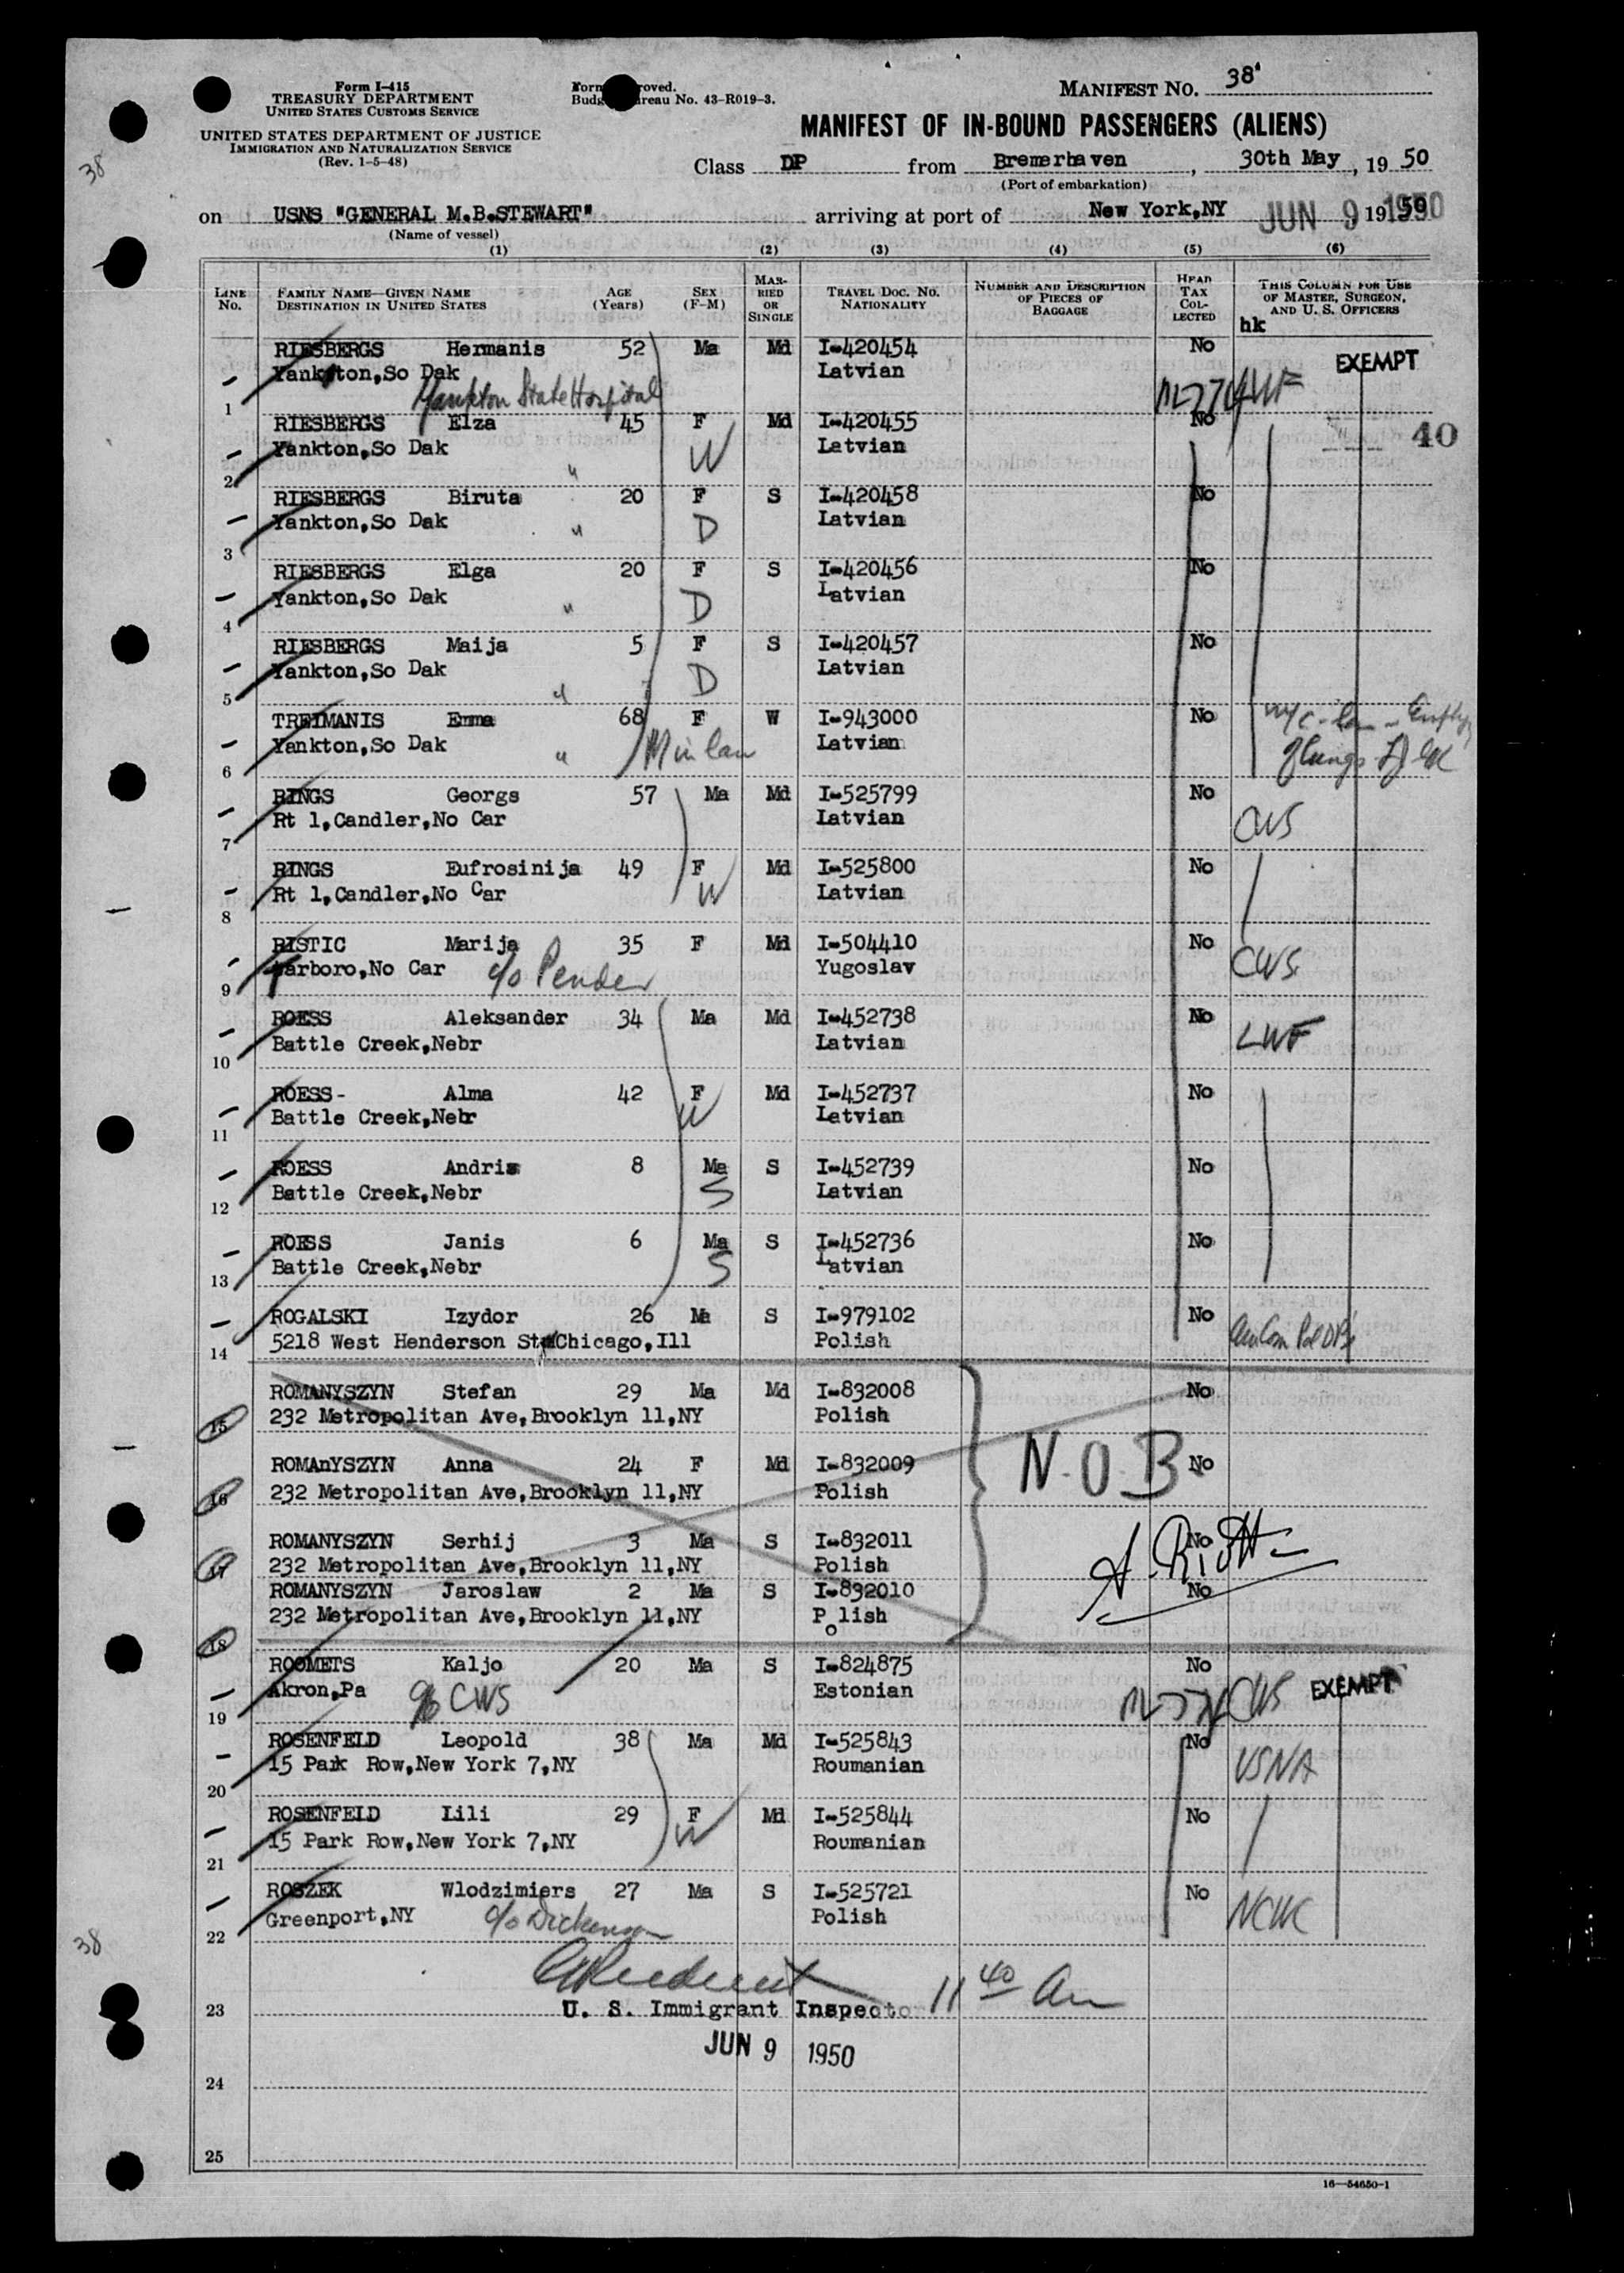 Form I-415
TREASURY DEPARTMENT
UNITED STATES CUSTOMS SERVICE
UNITED STATES DEPARTMENT OF JUSTICE
IMMIGRATION AND NATURALIZATION SERVICE
(Rev. 1-5-48)
Form roved.
Budg reau No. 43-R019-3.
MANIFEST NO. 38
MANIFEST OF IN-BOUND PASSENGERS (ALIENS)
38
Class DP from Bremerhaven, 30th May, 19 50
(Port of embarkation)
on USNS "GENERAL M.B.STEWART" arriving at port of New York,NY JUN 9 1950, 19 50
(Name of vessel)
(1) (2) (3) (4) (5) (6)
LINE NO. FAMILY NAME—GIVEN NAME DESTINATION IN UNITED STATES AGE (Years) SEX (F-M) MARRIED OR SINGLE TRAVEL DOC. NO. NATIONALITY NUMBER AND DESCRIPTION OF PIECES OF BAGGAGE HEAD TAX COLLECTED THIS COLUMN FOR USE OF MASTER, SURGEON, AND U. S. OFFICERS
hk
RIESBERGS Hermanis 52 Ma Md I-420454 No EXEMPT
Yankton,So Dak Latvian
1 Yankton State Hospital LWF
RIESBERGS Elza 45 F Md I-420455 No 40
Yankton,So Dak W Latvian
2 "
RIESBERGS Biruta 20 F S I-420458 No
Yankton,So Dak " D Latvian
3
RIESBERGS Elga 20 F S I-420456 No
Yankton,So Dak " D Latvian
4
RIESBERGS Maija 5 F S I-420457 No
Yankton,So Dak " D Latvian
5
TREIMANIS Emma 68 F W I-943000 No
Yankton,So Dak " M in law Latvian
6
RINGS Georgs 57 Ma Md I-525799 No
Rt 1,Candler,No Car Latvian CWS
7
RINGS Eufrosinija 49 F Md I-525800 No
Rt 1,Candler,No Car W Latvian
8
RISTIC Marija 35 F Md I-504410 No
Tarboro,No Car c/o Pender Yugoslav CWS
9
ROESS Aleksander 34 Ma Md I-452738 No
Battle Creek,Nebr Latvian LWF
10
ROESS- Alma 42 F Md I-452737 No
Battle Creek,Nebr W Latvian
11
ROESS Andris 8 Ma S I-452739 No
Battle Creek,Nebr S Latvian
12
ROESS Janis 6 Ma S I-452736 No
Battle Creek,Nebr S Latvian
13
ROGALSKI Izydor 26 Ma S I-979102 No
5218 West Henderson St Chicago,Ill Polish
14
ROMANYSZYN Stefan 29 Ma Md I-832008 No
232 Metropolitan Ave,Brooklyn 11,NY Polish
15
ROMAnYSZYN Anna 24 F Md I-832009 N.O.B. No
232 Metropolitan Ave,Brooklyn 11,NY Polish
16
ROMANYSZYN Serhij 3 Ma S I-832011 No
232 Metropolitan Ave,Brooklyn 11,NY Polish
17
ROMANYSZYN Jaroslaw 2 Ma S I-832010 No
232 Metropolitan Ave,Brooklyn 11,NY Polish
18
ROOMETS Kaljo 20 Ma S I-824875 No
Akron,Pa c/o CWS Estonian CWS EXEMPT
19
ROSENFELD Leopold 38 Ma Md I-525843 No
15 Park Row,New York 7,NY Roumanian USNA
20
ROSENFELD Lili 29 F Md I-525844 No
15 Park Row,New York 7,NY W Roumanian
21
ROSZEK Wlodzimiers 27 Ma S I-525721 No
Greenport,NY c/o Dickenson Polish NCWC
22
38
23 U. S. Immigrant Inspector 11 40 Am
JUN 9 1950
24
25
16—54650-1